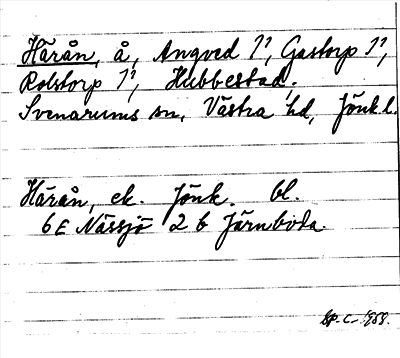 Härån, å, Angved 1¹, Gastorp 1¹,
Rolstorp 1¹, Hubbestad.
Svenarums sn, Västra hd, Jönk.l.
Härån, ek. Jönk. bl.
6E Nässjö 2 b Järnboda.